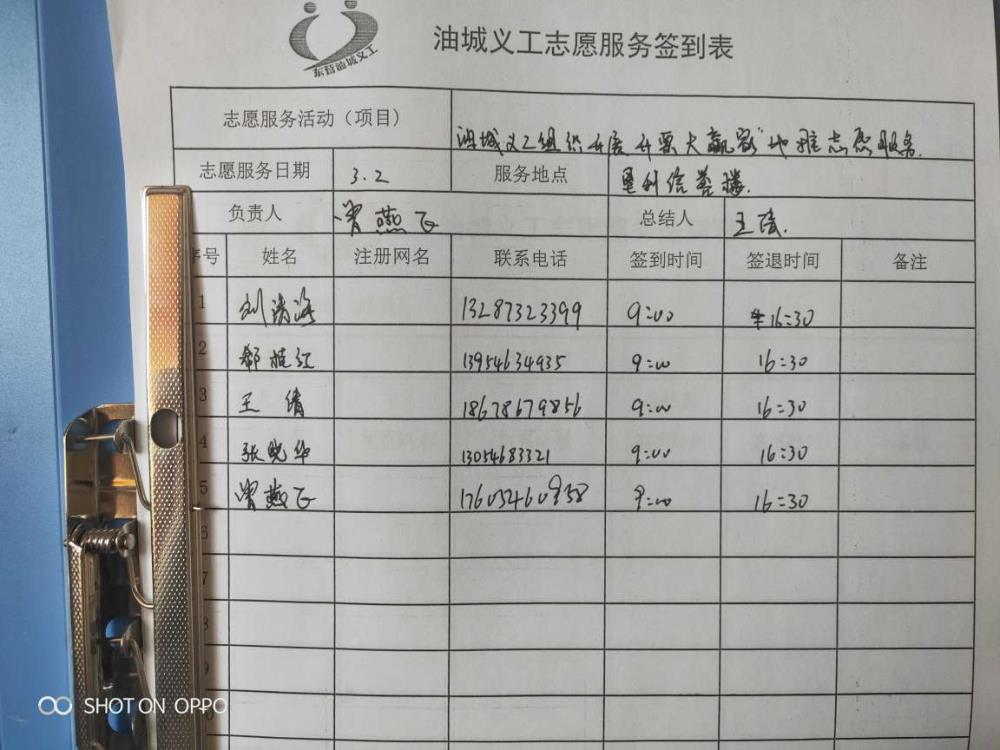 东营油城义工
油城义工志愿服务签到表
志愿服务活动（项目） 油城义工组织开展"开票大赢家"地推志愿服务.
志愿服务日期 3.2 服务地点 垦利信誉楼.
负责人 曾燕飞 总结人 王倩.
序号 姓名 注册网名 联系电话 签到时间 签退时间 备注
1 刘清海 13287323399 9:00 16:30
2 郗桂红 13954634935 9:00 16:30
3 王倩 18678679856 9:00 16:30
4 张晓华 13054683321 9:00 16:30
5 曾燕飞 17605460958 9:00 16:30
6
7
8
9
SHOT ON OPPO